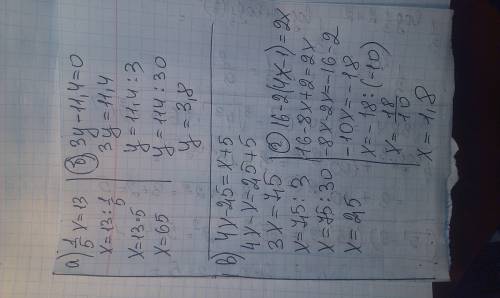 а) 1/5 x = 13
x = 13 : 1/5
x = 13·5
x = 65
б) 3y - 11,4 = 0
3y = 11,4
y = 11,4 : 3
y = 114 : 30
y = 3,8
в) 4x - 2,5 = x + 5
4x - x = 2,5 + 5
3x = 7,5
x = 7,5 : 3
x = 75 : 30
x = 2,5
г) 16 - 2(4x - 1) = 2x
16 - 8x + 2 = 2x
-8x - 2x = -16 - 2
-10x = -18
x = -18 : (-10)
x = 18/10
x = 1,8